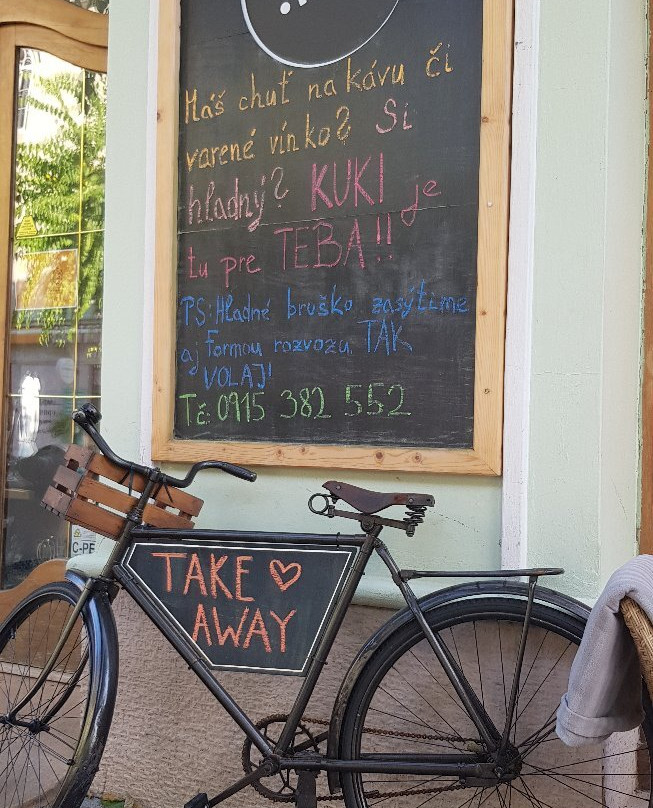 Máš chuť na kávu či
varené vínko? Si
hladný? KUKI je
tu pre TEBA!!
PS: Hladné bruško zasýtime
aj formou rozvozu TAK
VOLAJ!
Tč: 0915 382 552
TAKE ♡
AWAY
C-PE